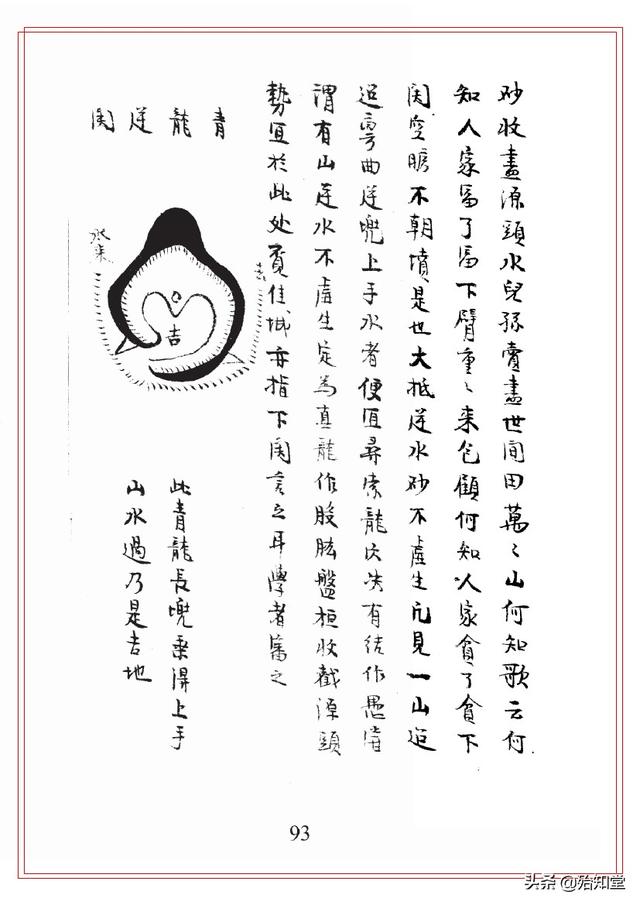 砂收盡源頭水兒孫賣盡世間田萬〻山何知歌云何
知人家富了富下臂重〻来包顧何知人家貧了貧下
関空曠不朝墳是也大抵逆水砂不虛生凢見一山迢
迢彎曲逆兜上手水者便宜尋索龍穴决有結作愚嘗
謂有山逆水不虛生定為真龍作股肱盤桓收截源頭
勢宜於此处覓佳城亦指下関言之耳學者審之
青龍逆関
去
吉
水来
此青龍長兜乘得上手
山水過乃是吉地
93
头条 @殆知堂